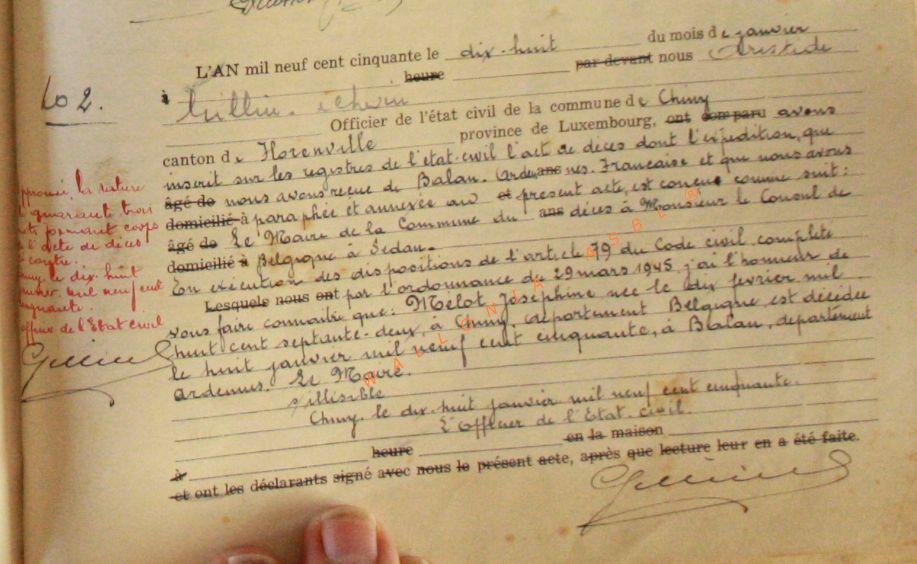 L'AN mil neuf cent cinquante le dix-huit du mois de janvier
à heure par devant nous Aristide
No 2.
Officier de l'état civil de la commune de Chiny
canton de Florenville province de Luxembourg, ont comparu avons
inscrit sur les registres de l'état-civil l'acte de décès dont l'expédition, que
âgé de nous avons reçue de Balan. Ardennes. Française et que nous avons
domicilié à paraphée et annexée au et présent acte, est conçue comme suit:
âgé de Le Maire de la Commune du ans décès à Monsieur le Consul de
domicilié à Belgique à Sedan.
En exécution des dispositions de l'article 79 du Code civil complété
Lesquels nous ont par l'ordonnance du 29 mars 1945 j'ai l'honneur de
vous faire connaître que: Mélot, Joséphine née le dix février mil
huit cent septante-deux, à Chiny, département Belgique est décédée
le huit janvier mil neuf cent cinquante, à Balan, département
Ardennes. Le Maire.
s/illisible
Chiny, le dix-huit janvier mil neuf cent cinquante.
L'Officier de l'Etat-civil.
à heure en la maison
et ont les déclarants signé avec nous le présent acte, après que lecture leur en a été faite.
la rature
quarante trois
formant corps
l'acte de décès
contre.
le dix-huit
mil neuf cent
cinquante.
de l'Etat civil
WALLONIA ASBL